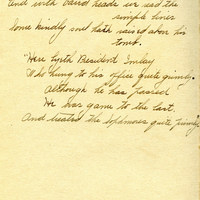 and with bared heads we read the
simple lines
Some kindly soul hath raised upon his
tomb.
"Here lyeth President Smiley
Who hung to his office quite grimly.
Although he has passed
He was game to the last.
And treated the Sophmores quite